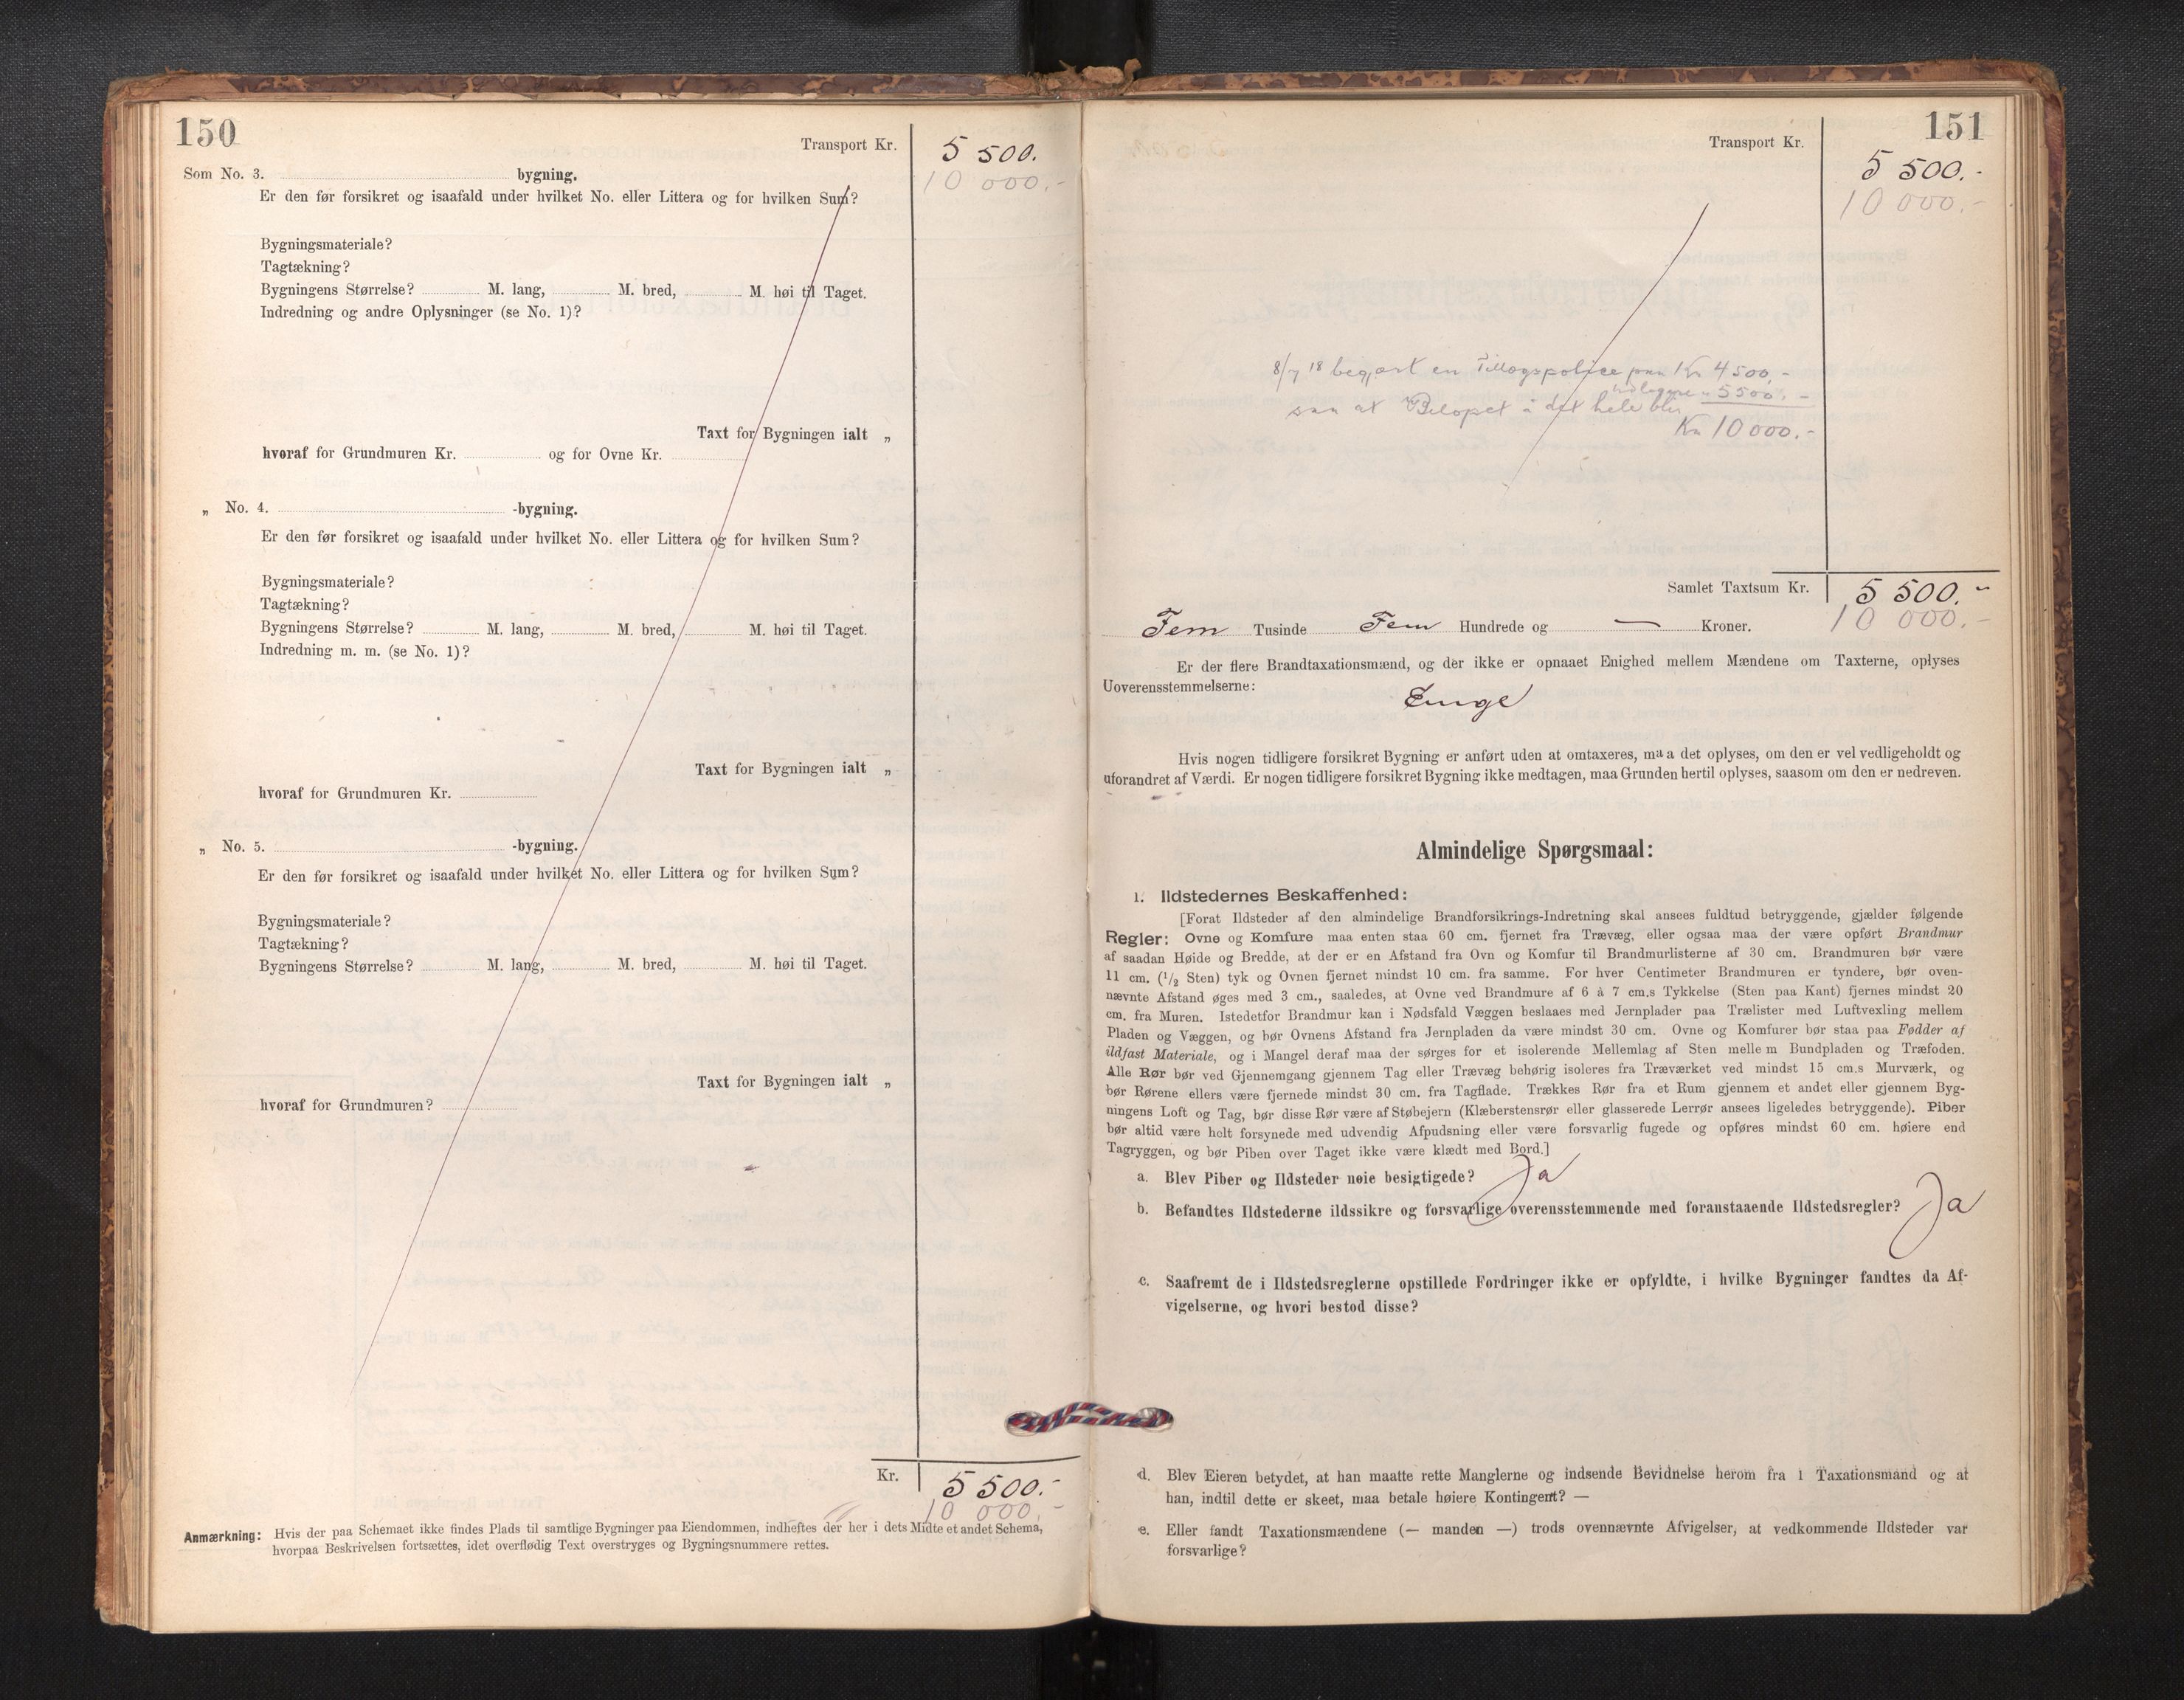 150
Transport Kr.
5 500.
10 000.-
Som No. 3. bygning.
Er den før forsikret og isaafald under hvilket No. eller Littera og for hvilken Sum?
Bygningsmateriale?
Tagtækning?
Bygningens Størrelse? M. lang, M. bred, M. høi til Taget.
Indredning og andre Oplysninger (se No. 1)?
Taxt for Bygningen ialt „
hvoraf for Grundmuren Kr. og for Ovne Kr.
„ No. 4. -bygning.
Er den før forsikret og isaafald under hvilket No. eller Littera og for hvilken Sum?
Bygningsmateriale?
Tagtækning?
Bygningens Størrelse? M. lang, M. bred, M. høi til Taget.
Indredning m. m. (se No. 1)?
Taxt for Bygningen ialt „
hvoraf for Grundmuren Kr.
„ No. 5. -bygning.
Er den før forsikret og isaafald under hvilket No. eller Littera og for hvilken Sum?
Bygningsmateriale?
Tagtækning?
Bygningens Størrelse? M. lang, M. bred, M. høi til Taget.
Taxt for Bygningen ialt „
hvoraf for Grundmuren?
Kr. 5 500.-
10 000.-
Anmærkning: Hvis der paa Schemaet ikke findes Plads til samtlige Bygninger paa Eiendommen, indheftes der her i dets Midte et andet Schema,
hvorpaa Beskrivelsen fortsættes, idet overflødig Text overstryges og Bygningsnummere rettes.
151
Transport Kr.
5 500.-
10 000.-
8/7 18 begjært en Tillægspolice paa Kr 4500,-
5500,-
saa at Beløpet i det hele blir
Kr 10000.-
Samlet Taxtsum Kr. 5 500.-
10 000.-
Fem Tusinde Fem Hundrede og — Kroner.
Er der flere Brandtaxationsmænd, og der ikke er opnaaet Enighed mellem Mændene om Taxterne, oplyses
Uoverensstemmelserne:
Enige
Hvis nogen tidligere forsikret Bygning er anført uden at omtaxeres, maa det oplyses, om den er vel vedligeholdt og
uforandret af Værdi. Er nogen tidligere forsikret Bygning ikke medtagen, maa Grunden hertil oplyses, saasom om den er nedreven.
Almindelige Spørgsmaal:
1. Ildstedernes Beskaffenhed:
[Forat Ildsteder af den almindelige Brandforsikrings-Indretning skal ansees fuldtud betryggende, gjælder følgende
Regler: Ovne og Komfure maa enten staa 60 cm. fjernet fra Trævæg, eller ogsaa maa der være opført Brandmur
af saadan Høide og Bredde, at der er en Afstand fra Ovn og Komfur til Brandmurlisterne af 30 cm. Brandmuren bør være
11 cm. (1/2 Sten) tyk og Ovnen fjernet mindst 10 cm. fra samme. For hver Centimeter Brandmuren er tyndere, bør oven-
nævnte Afstand øges med 3 cm., saaledes, at Ovne ved Brandmure af 6 à 7 cm.s Tykkelse (Sten paa Kant) fjernes mindst 20
cm. fra Muren. Istedetfor Brandmur kan i Nødsfald Væggen beslaaes med Jernplader paa Trælister med Luftvexling mellem
Pladen og Væggen, og bør Ovnens Afstand fra Jernpladen da være mindst 30 cm. Ovne og Komfurer bør staa paa Fødder af
ildfast Materiale, og i Mangel deraf maa der sørges for et isolerende Mellemlag af Sten mellem Bundpladen og Træfoden.
Alle Rør bør ved Gjennemgang gjennem Tag eller Trævæg behørig isoleres fra Træværket ved mindst 15 cm.s Murværk, og
bør Rørene ellers være fjernede mindst 30 cm. fra Tagflade. Trækkes Rør fra et Rum gjennem et andet eller gjennem Byg-
ningens Loft og Tag, bør disse Rør være af Støbejern (Klæberstensrør eller glasserede Lerrør ansees ligeledes betryggende). Piber
bør altid være helt forsynede med udvendig Afpudsning eller være forsvarlig fugede og opføres mindst 60 cm. høiere end
Tagryggen, og bør Piben over Taget ikke være klædt med Bord.]
a. Blev Piber og Ildsteder nøie besigtigede? Ja
b. Befandtes Ildstederne ildssikre og forsvarlige overensstemmende med foranstaaende Ildstedsregler? Ja
c. Saafremt de i Ildstedsreglerne opstillede Fordringer ikke er opfyldte, i hvilke Bygninger fandtes da Af-
vigelserne, og hvori bestod disse?
d. Blev Eieren betydet, at han maatte rette Manglerne og indsende Bevidnelse herom fra 1 Taxationsmand og at
han, indtil dette er skeet, maa betale høiere Kontingent? —
e. Eller fandt Taxationsmændene (— manden —) trods ovennævnte Afvigelser, at vedkommende Ildsteder var
forsvarlige?